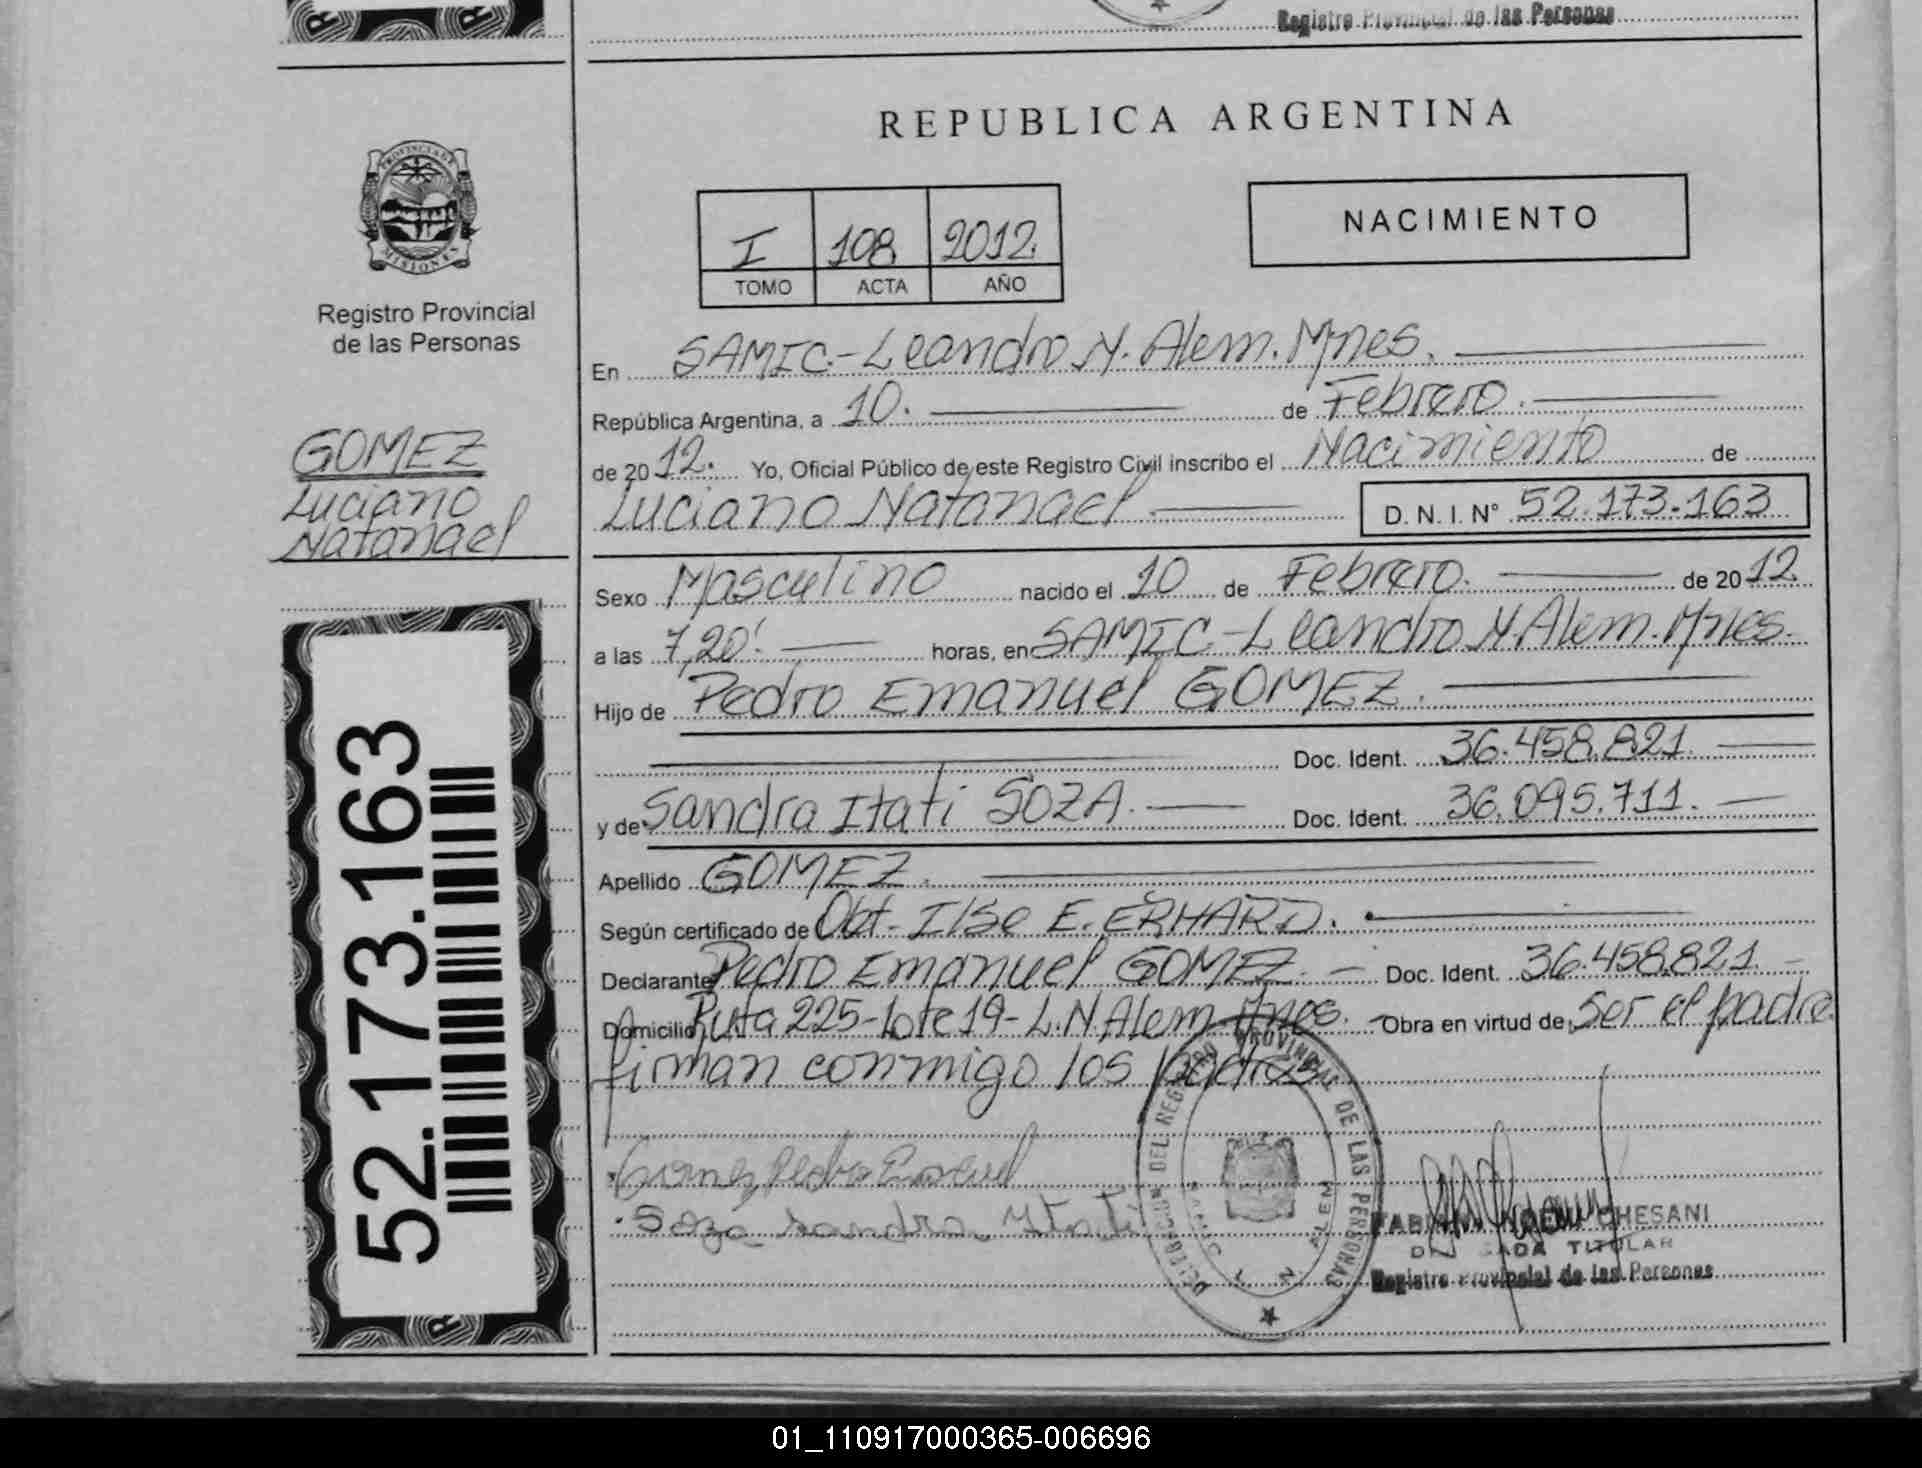 Registro Provincial de las Personas
REPUBLICA ARGENTINA
PROVINCIA DE
MISIONES
Registro Provincial
de las Personas
I 108 2012.
TOMO ACTA AÑO
NACIMIENTO
GOMEZ
Luciano
Natanael
52.173.163
En SAMIC.-Leandro N. Alem. Mnes.
República Argentina, a 10. de Febrero.
de 20 12. Yo, Oficial Público de este Registro Civil inscribo el Nacimiento de
Luciano Natanael D. N. I. N° 52.173.163
Sexo Masculino nacido el 10 de Febrero. de 20 12
a las 7,20'. horas, en SAMIC-Leandro N. Alem. Mnes.
Hijo de Pedro Emanuel GOMEZ.
Doc. Ident. 36.458.821.
y de Sandra Itati SOZA. Doc. Ident. 36.095.711.
Apellido GOMEZ.
Según certificado de Obt. Ilse E. ERHARD.
Declarante Pedro Emanuel GOMEZ. Doc. Ident. 36.458.821
Domicilio Ruta 225-Lote 19-L.N.Alem Mnes. Obra en virtud de ser el padre
firman conmigo los padres
Gomez Pedro
Soza Sandra Itati
DEL REGISTRO PROVINCIAL DE LAS PERSONAS
SAMIC L N ALEM
CHESANI
TITULAR
Registro Provincial de las Personas
01_110917000365-006696